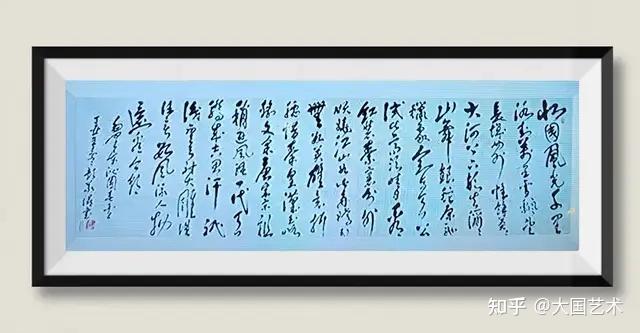 北国风光千里
冰封万里雪飘望
长城内外惟余莽莽
大河上下顿失滔滔
山舞银蛇原驰
蜡象欲与天公
试比高须晴日看
红装素裹分外
妖娆江山如此多娇引
无数英雄竞折
腰惜秦皇汉武略
输文采唐宗宋祖
稍逊风骚一代天
骄成吉思汗只
识弯弓射大雕俱
往矣数风流人物
还看今朝
沁园春雪
知乎 @大国艺术